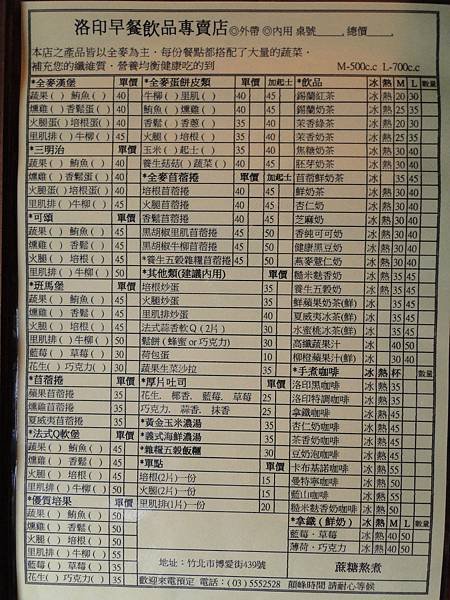 洛印早餐飲品專賣店 ◎外帶 ◎內用 桌號____, 總價____.
本店之產品皆以全麥為主,每份餐點都搭配了大量的蔬菜,
補充您的纖維質,營養均衡健康吃的到 M-500c.c L-700c.c
*全麥漢堡 單價
蔬果( ) 鮪魚( ) 40
燻雞( ) 香鬆蛋( ) 40
火腿蛋( )培根蛋( ) 40
里肌排( )牛柳( ) 45
*三明治 單價
蔬果( ) 鮪魚( ) 40
燻雞( )香鬆蛋( ) 40
火腿蛋( )培根蛋( ) 40
里肌排( )牛柳( ) 45
*可頌 單價
蔬果( ) 鮪魚( ) 45
燻雞( ) 香鬆( ) 45
火腿( ) 培根( ) 45
里肌排( ) 牛柳( ) 50
*班馬堡 單價
蔬果( ) 鮪魚( ) 45
燻雞( ) 香鬆( ) 45
火腿( ) 培根( ) 45
里肌排( ) 牛柳( ) 50
藍莓( ) 草莓( ) 30
花生( ) 巧克力( ) 30
*苜蓿捲 單價
蘋果苜蓿捲 35
燻雞苜蓿捲 35
夏威夷苜蓿捲 35
*法式Q軟堡
蔬果( ) 鮪魚( ) 45
燻雞( ) 香鬆( ) 45
火腿( ) 培根( ) 45
里肌排( ) 牛柳( ) 50
*優質培果 單價
蔬果( ) 鮪魚( ) 50
燻雞( ) 香鬆( ) 50
火腿( ) 培根( ) 50
里肌排( ) 牛柳( ) 55
藍莓( ) 草莓( ) 35
花生( ) 巧克力( ) 35
*全麥蛋餅皮類 單價 加起士
牛柳( ) 里肌( ) 40 45
燻雞( ) 鮪魚( ) 35 40
香鬆( ) 香蔥( ) 30 35
火腿( ) 培根( ) 35 40
玉米( ) 起士( ) 35 40
養生菇菇( ) 蔬菜( ) 40 45
*全麥苜蓿捲 單價 加起士
培根苜蓿捲 40 45
火腿苜蓿捲 40 45
香鬆苜蓿捲 40 45
黑胡椒里肌苜蓿捲 45 50
黑胡椒牛柳苜蓿捲 45 50
*養生五穀雜糧苜蓿捲 45 50
*其他類(建議內用) 單價
培根炒蛋 35
火腿炒蛋 35
法式蒜香軟Q(2片) 30
鬆餅(蜂蜜or巧克力) 30
荷包蛋 10
蔬果生菜沙拉 35
*厚片吐司 單價
花生, 椰香, 藍莓, 草莓 25
巧克力, 蒜香, 抹香 25
*黃金玉米濃湯
*義式海鮮濃湯
*雜糧五穀飯糰
*單點 單價
培根(2片)一份 15
火腿(2片)一份 15
里肌排(1片)一份 20
*飲品 冰 熱 M L 數量
錫蘭紅茶 冰 熱 20 30
錫蘭奶茶 冰 熱 25 35
茉香綠茶 冰 熱 20 30
茉香奶茶 冰 熱 25 35
焦糖奶茶 冰 熱 30 40
胚芽奶茶 冰 熱 30 40
苜蓿鮮奶茶 冰 35 45
鮮奶茶 冰 熱 35 45
杏仁奶 冰 熱 30 40
芝麻奶 冰 熱 30 40
香純可可奶 冰 熱 30 40
健康黑豆奶 冰 熱 30 40
燕麥薏仁奶 冰 熱 30 40
糙米麩香奶 冰 熱 35 45
養生五穀奶 冰 熱 35 45
鮮蘋果奶茶(鮮) 冰 35 45
夏威夷冰茶(鮮) 冰 35 45
水蜜桃冰茶(鮮) 冰 35 45
高纖蔬果汁 冰 40 50
柳橙蘋果汁(鮮) 冰 30 40
*手煮咖啡 冰 熱 杯 數量
洛印黑咖啡 冰 熱 35
洛印特調咖啡 冰 熱 35
拿鐵咖啡 冰 熱 45
杏仁奶咖啡 冰 熱 45
茶香奶咖啡 冰 熱 45
豆奶泡咖啡 冰 熱 45
卡布基諾咖啡 冰 熱 55
曼特寧咖啡 冰 熱 55
藍山咖啡 冰 熱 55
糙米麩香奶咖啡 冰 熱 55
*拿鐵(鮮奶) 冰 熱 M L 數量
藍莓,草莓 冰 熱 40 50
薄荷,巧克力 冰 熱 40 50
地址:竹北市博愛街439號 蔗糖熬煮
歡迎來電預定 電話:(03)5552528 顛峰時間 請耐心等候